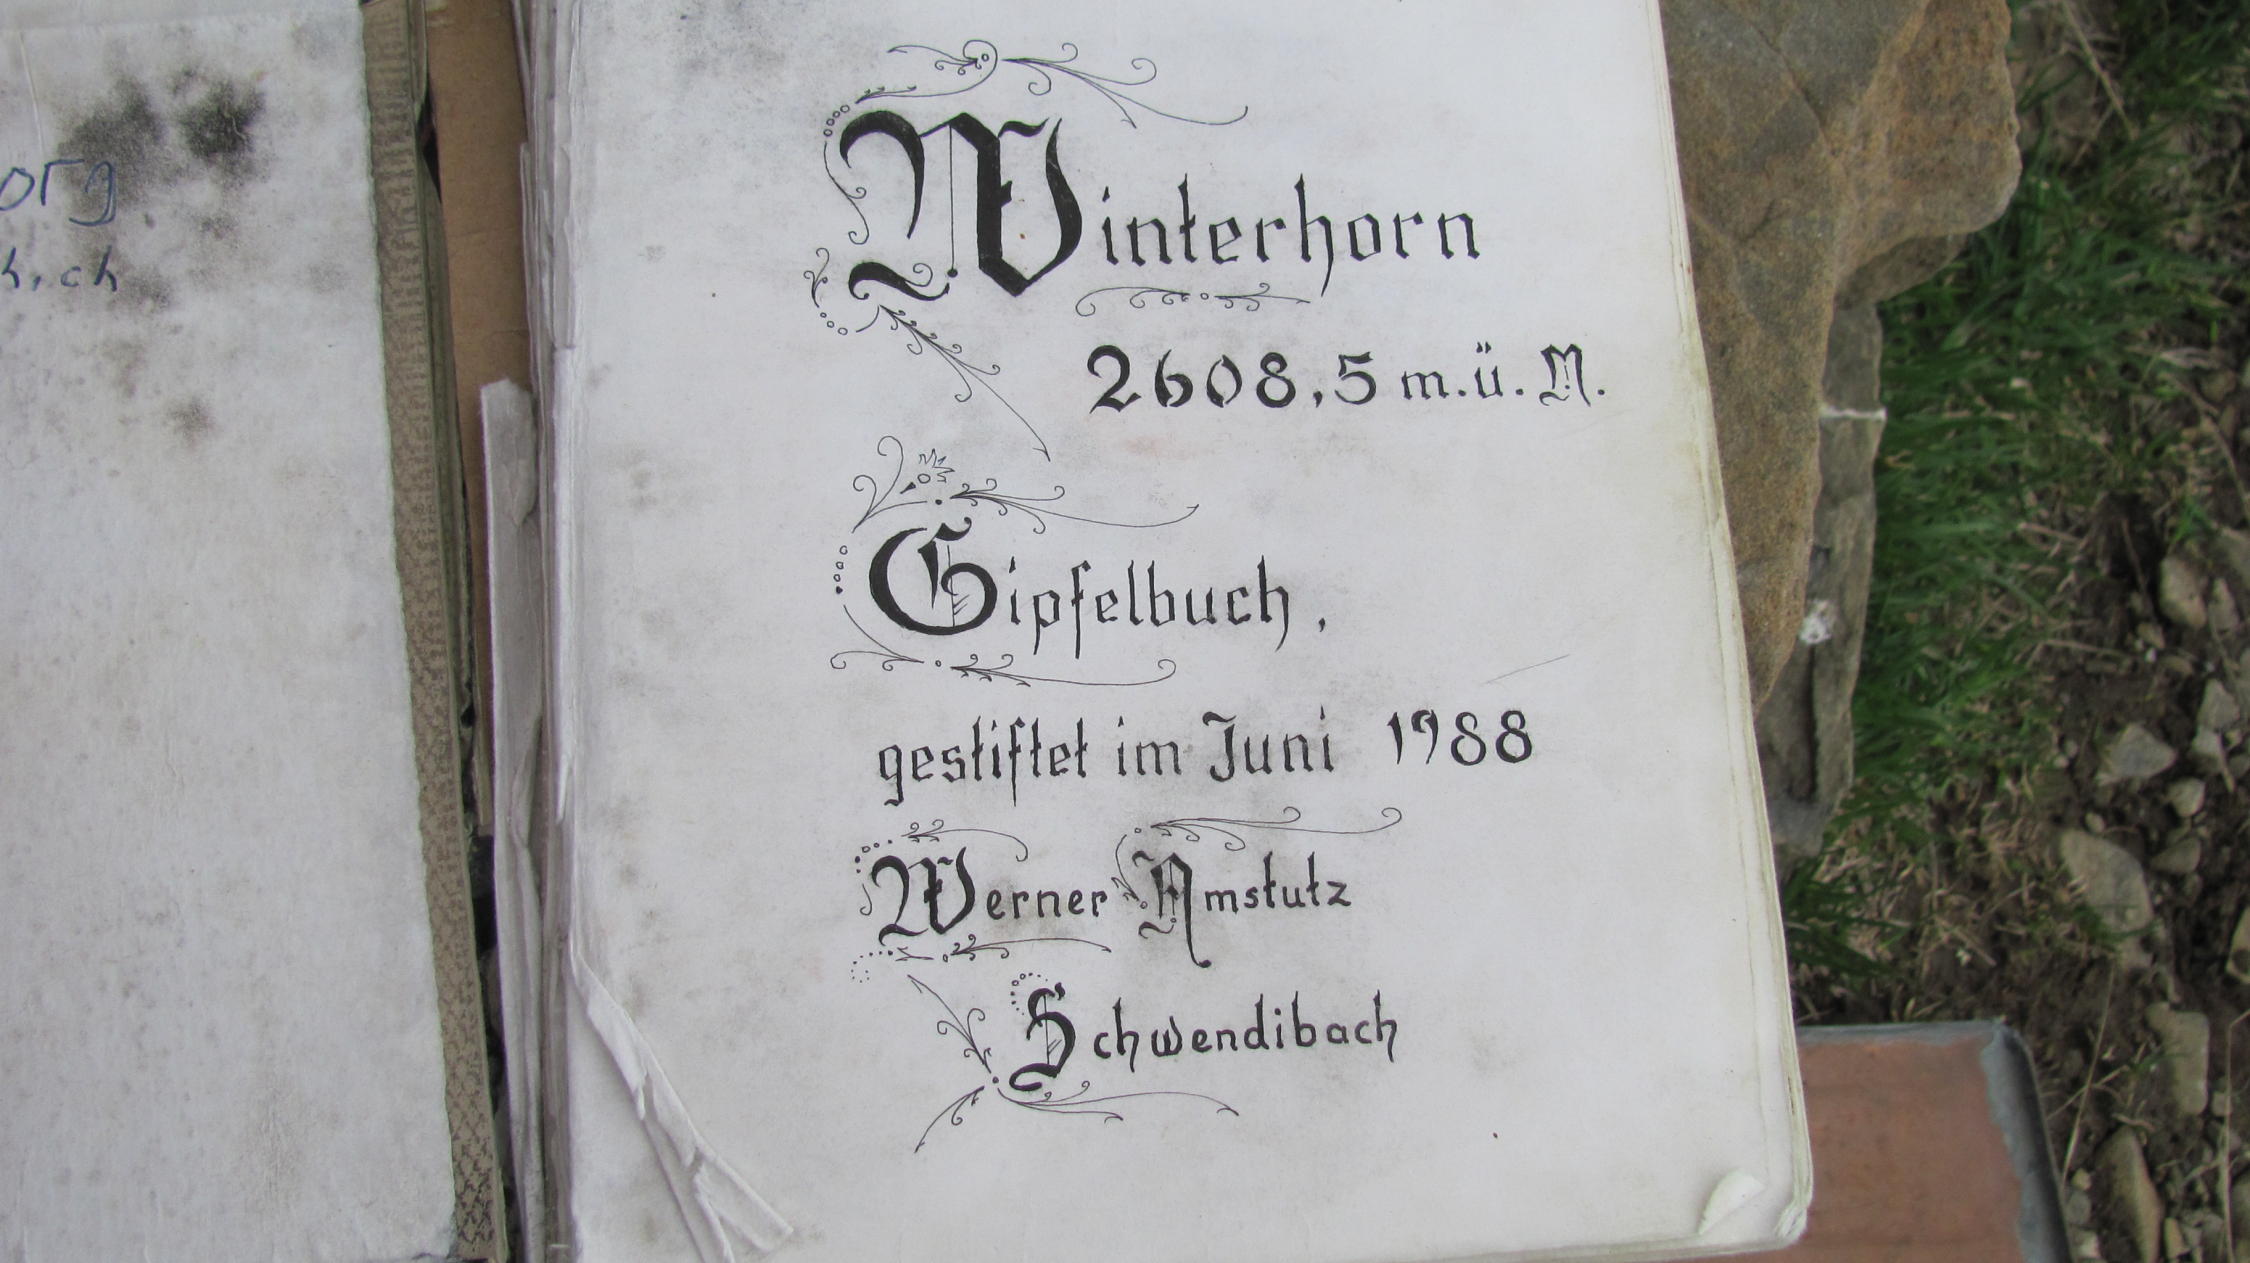 org
h.ch
Winterhorn
2608,5 m.ü.M.
Gipfelbuch,
gestiftet im Juni 1988
Werner Amstutz
Schwendibach